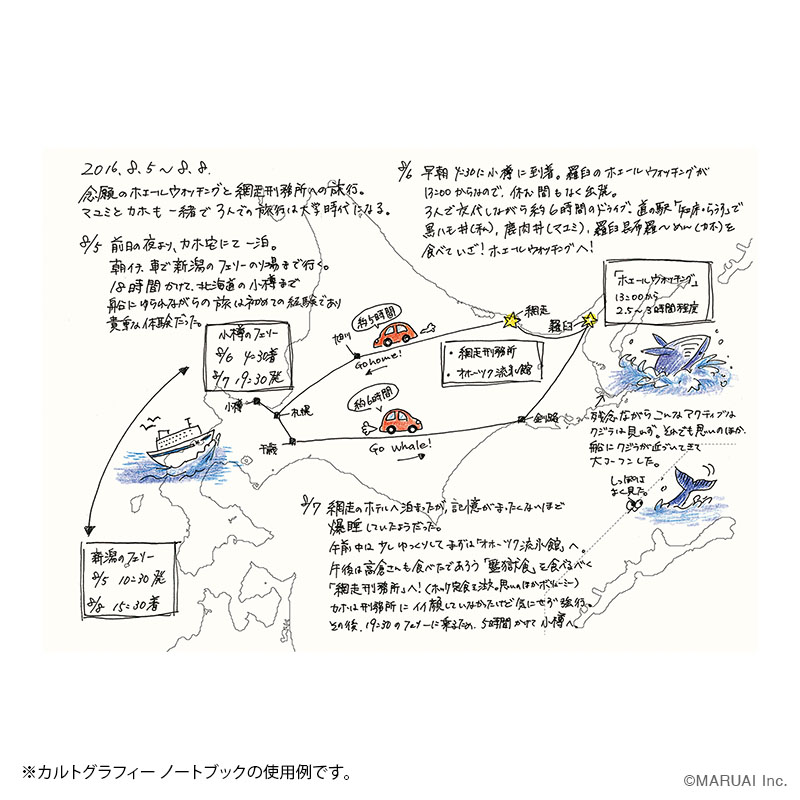 2016.8.5〜8.8.
念願のホエールウォッチングと網走刑務所への旅行。
マユミとカホも一緒で3人での旅行は大学時代になる。
8/5 前日の夜より、カホ宅にて一泊。
朝イチ、車で新潟のフェリーのり場まで行く。
18時間かけて、北海道の小樽まで
船にゆられながらの旅は初めての経験であり
貴重な体験だった。
8/6 早朝4:30に小樽に到着。羅臼のホエールウォッチングが
13:00からなので、休む間もなく出発。
3人で交代しながら約6時間のドライブ。道の駅「知床・らうす」で
黒ハモ丼(私)、鹿肉丼(マユミ)、羅臼昆布羅〜めん(カホ)を
食べていざ!ホエールウォッチングへ!
「ホエールウォッチング」
13:00から
2.5〜3時間程度
小樽のフェリー
8/6 4:30着
8/7 19:30発
約5時間
旭川
Go home!
網走
羅臼
・網走刑務所
・オホーツク流氷館
小樽
札幌
千歳
約6時間
Go Whale!
釧路
残念ながらこんなアクティブな
クジラは見れず。それでも思いのほか、
船にクジラが近づいてきて
大コーフンした。
しっぽは
よく見た。
新潟のフェリー
8/5 10:30発
8/8 15:30着
8/7 網走のホテルへ泊まったが、記憶がまったくないほど
爆睡していたようだった。
午前中は少しゆっくりしてまずは「オホーツク流氷館」へ。
午後は高倉さんも食べたであろう「監獄食」を食べるべく
「網走刑務所」へ!(ホッケ定食を。思いのほかボリューミー)
カホは刑務所にイイ顔していなかったけど気にせず強行。
その後、19:30のフェリーに乗るため、5時間かけて小樽へ。
※カルトグラフィー ノートブックの使用例です。
©MARUAI Inc.